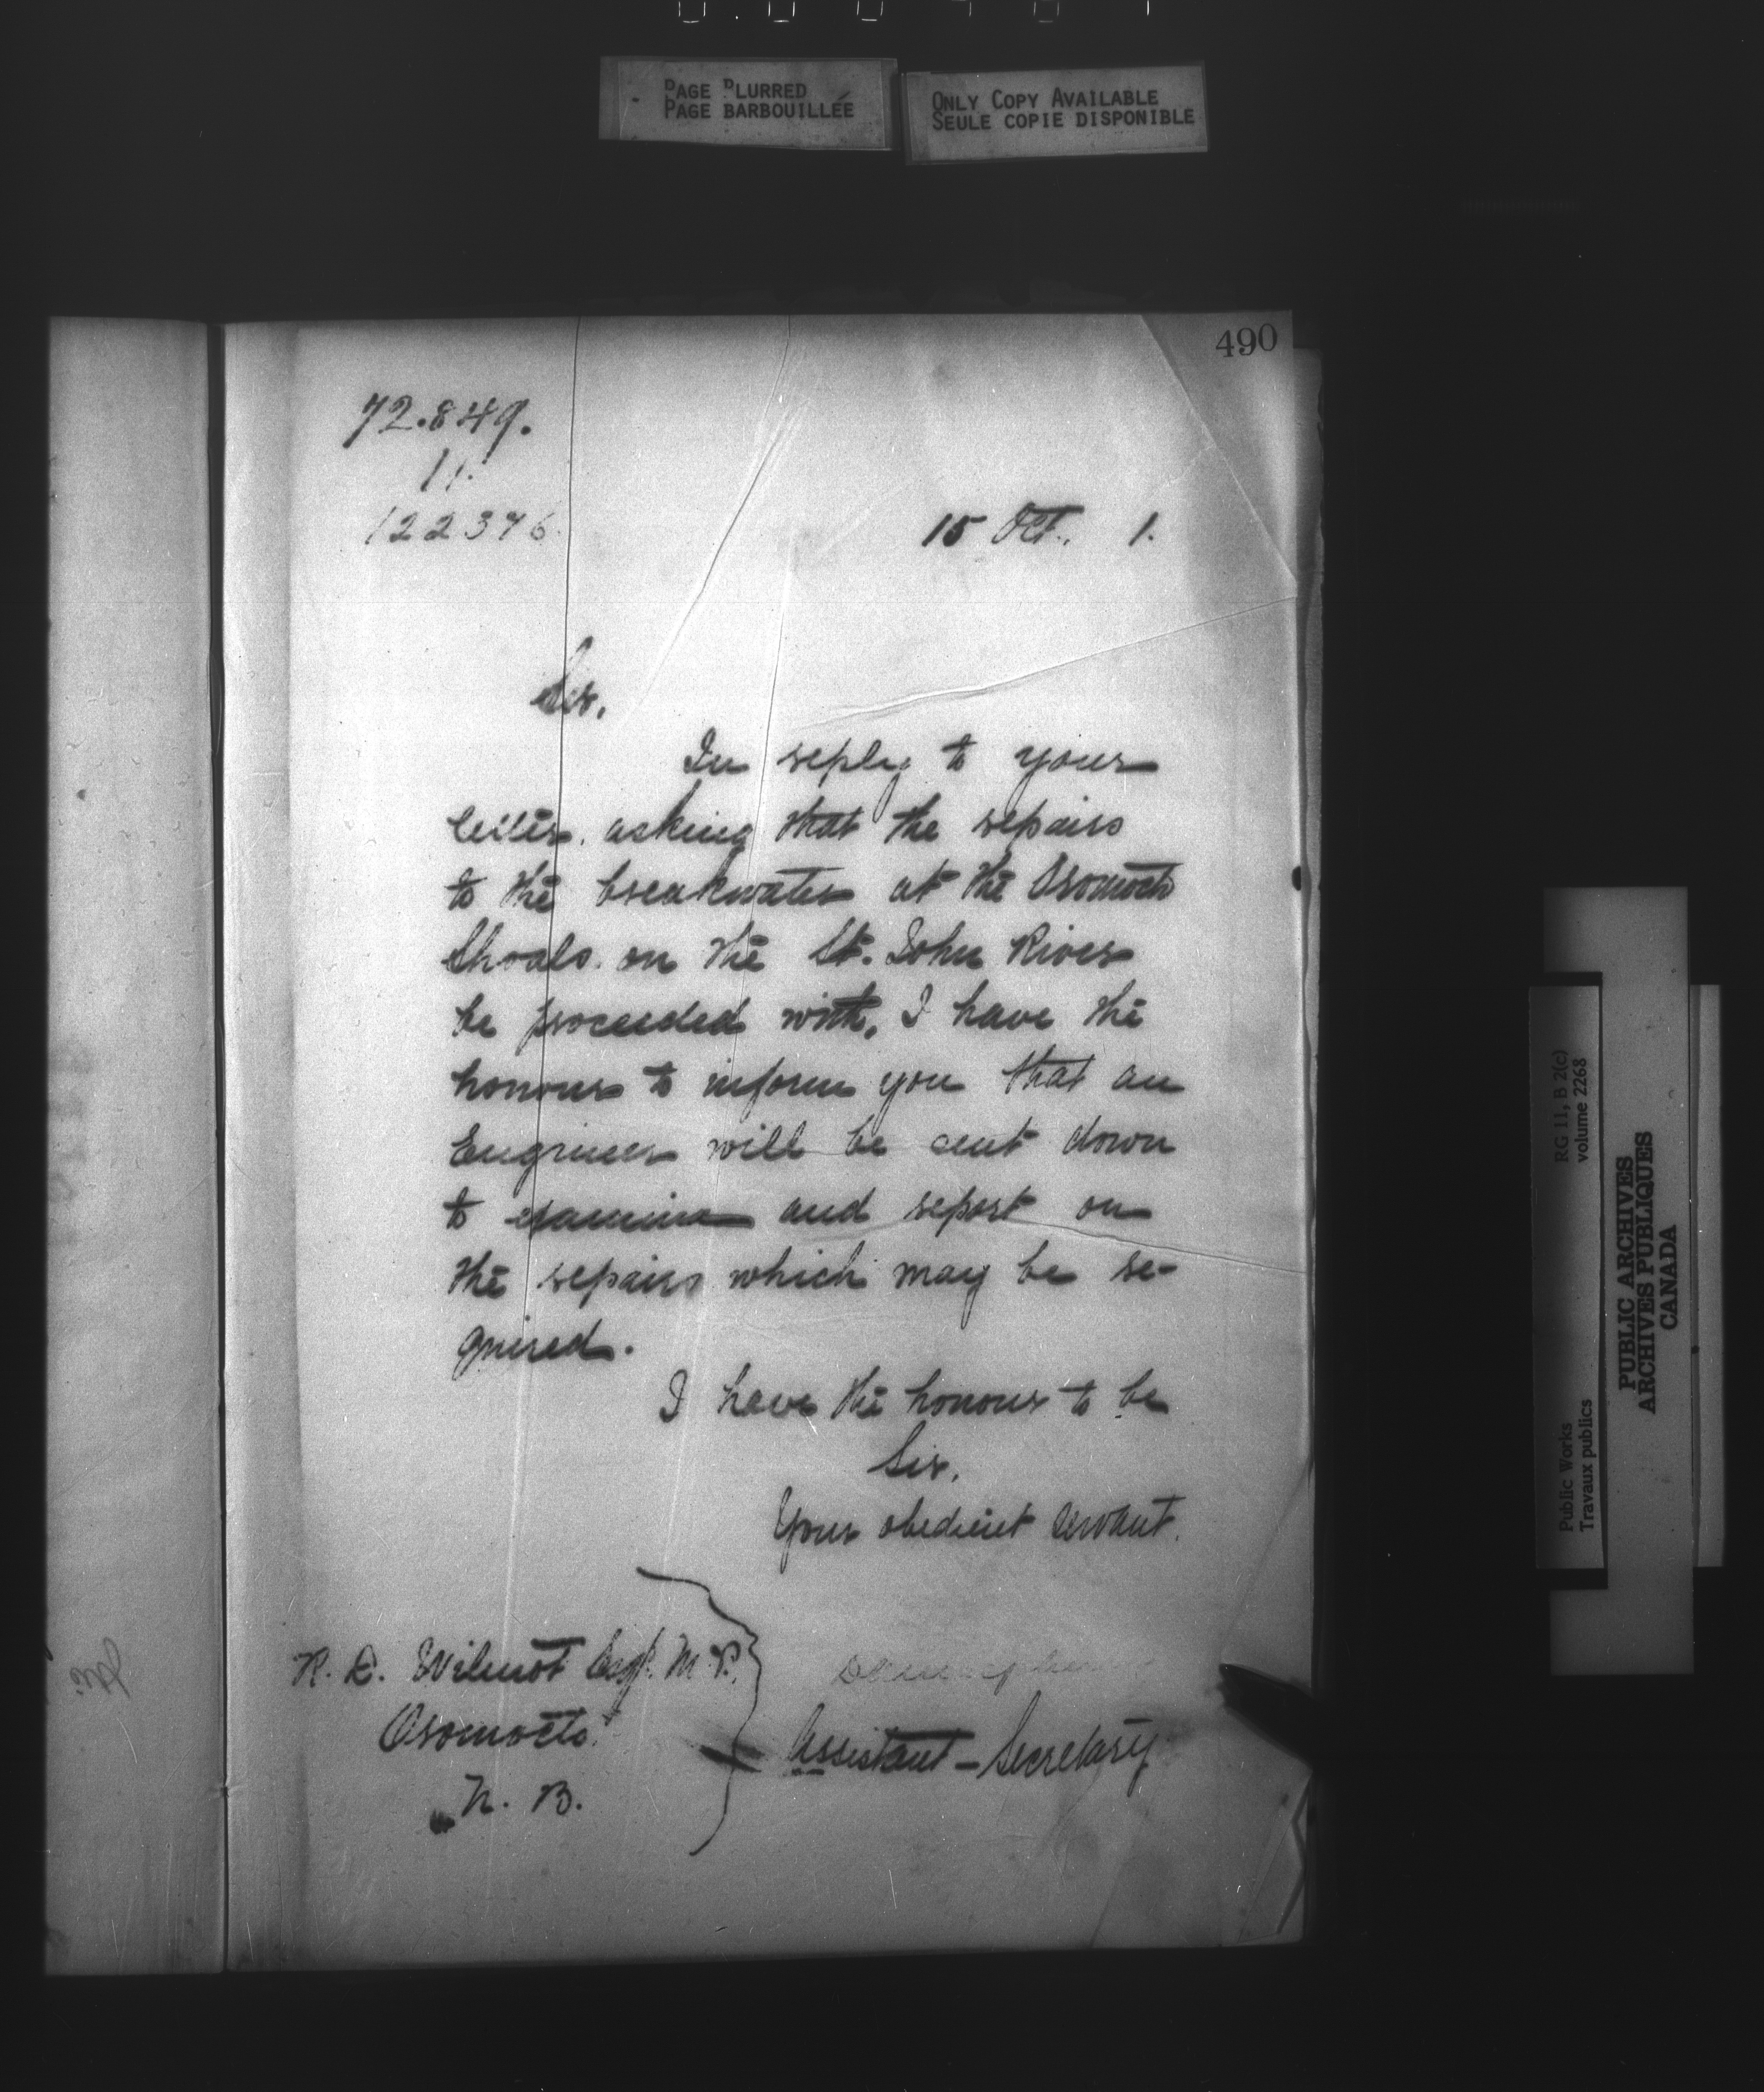 PAGE BLURRED
PAGE BARBOUILLÉE
ONLY COPY AVAILABLE
SEULE COPIE DISPONIBLE
490
72.849.
11.
122376
15 Oct. 1.
Sir,
In reply to your
letter asking that the repairs
to the breakwater at the Oromocto
Shoals on the St. John River
be proceeded with, I have the
honour to inform you that an
Engineer will be sent down
to examine and report on
the repairs which may be re-
quired.
I have the honour to be
Sir,
Your obedient servant.
R. D. Wilmot Esq. M.P.
Oromocto
N. B.
Assistant-Secretary
RG 11, B 2(c)
volume 2268
Public Works
Travaux publics
PUBLIC ARCHIVES
ARCHIVES PUBLIQUES
CANADA